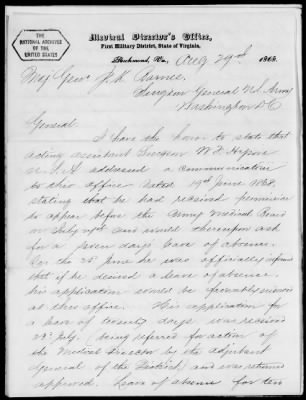 THE
NATIONAL ARCHIVES
OF THE
UNITED STATES
Medical Director's Office,
First Military District, State of Virginia,
Richmond, Va, Aug 29th 1868.
Maj Genl J. K. Barnes.
Surgeon General U.S. Army
Washington D.C.
General
I have the honor to state that
acting assistant Surgeon W. F.
U.S.A addressed a communication
to this office dated 19th June 1868,
stating that he had received permission
to appear before the Army Medical Board
on July and would thereupon ask
for a seven days leave of absence.
On the 25th June he was officially informed
that if he desired a leave of absence
his application would be favorably viewed
at this office. His application for
a leave of twenty days was received
23d July, (being referred for action of
the Medical Director by the adjutant
General of the District) and was returned
approved. Leave of absence for ten